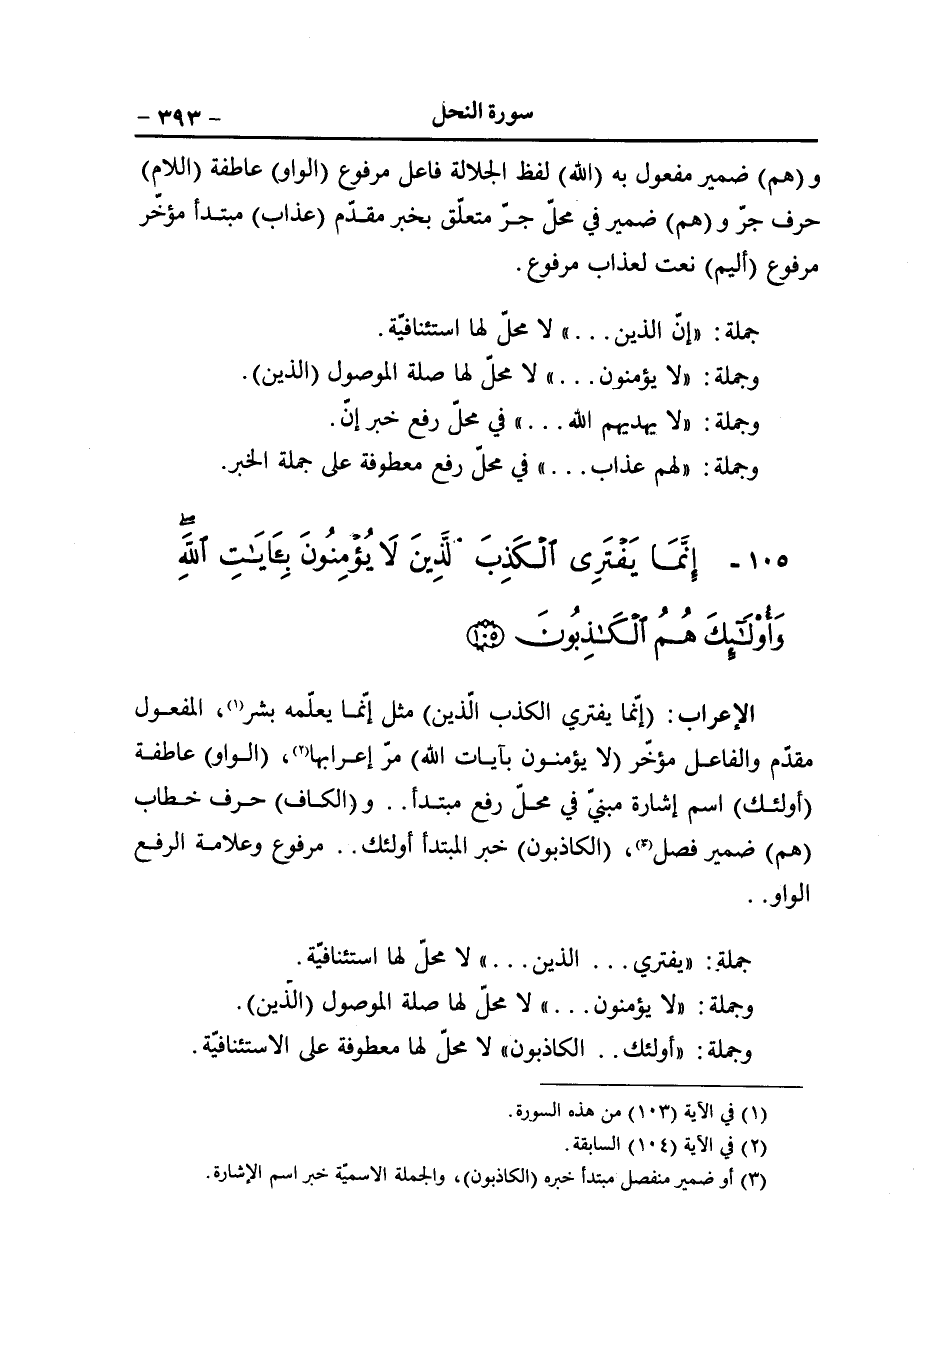 سورة النحل - ٣٩٣ -
و (هم) ضمير مفعول به (الله) لفظ الجلالة فاعل مرفوع (الواو) عاطفة (اللام)
حرف جرّ و (هم) ضمير في محلّ جـرّ متعلّق بخبر مقـدّم (عذاب) مبتـدأ مؤخّر
مرفوع (أليم) نعت لعذاب مرفوع.
جملة: «إنّ الذين...» لا محلّ لها استئنافيّة.
وجملة: «لا يؤمنون...» لا محلّ لها صلة الموصول (الذين).
وجملة: «لا يهديهم الله...» في محلّ رفع خبر إنّ.
وجملة: «لهم عذاب...» في محلّ رفع معطوفة على جملة الخبر.
١٠٥ - إِنَّمَا يَفْتَرِى ٱلْكَذِبَ ٱلَّذِينَ لَا يُؤْمِنُونَ بِـَٔايَـٰتِ ٱللَّهِ ۖ
وَأُو۟لَـٰٓئِكَ هُمُ ٱلْكَـٰذِبُونَ ١٠٥
الإعراب: (إنّما يفتري الكذب الّذين) مثل إنّمـا يعلّمه بشر(١)، المفعـول
مقدّم والفاعـل مؤخّر (لا يؤمنـون بآيـات الله) مرّ إعـرابها(٢)، (الـواو) عاطفـة
(أولئـك) اسم إشارة مبنيّ في محـلّ رفع مبتـدأ.. و (الكـاف) حـرف خـطاب
(هم) ضمير فصل(٣)، (الكاذبون) خبر المبتدأ أولئك.. مرفوع وعلامـة الرفـع
الواو..
جملة: «يفتري... الذين...» لا محلّ لها استئنافيّة.
وجملة: «لا يؤمنون...» لا محلّ لها صلة الموصول (الّذين).
وجملة: «أولئك.. الكاذبون» لا محلّ لها معطوفة على الاستئنافيّة.
(١) في الآية (١٠٣) من هذه السورة.
(٢) في الآية (١٠٤) السابقة.
(٣) أو ضمير منفصل مبتدأ خبره (الكاذبون)، والجملة الاسميّة خبر اسم الإشارة.